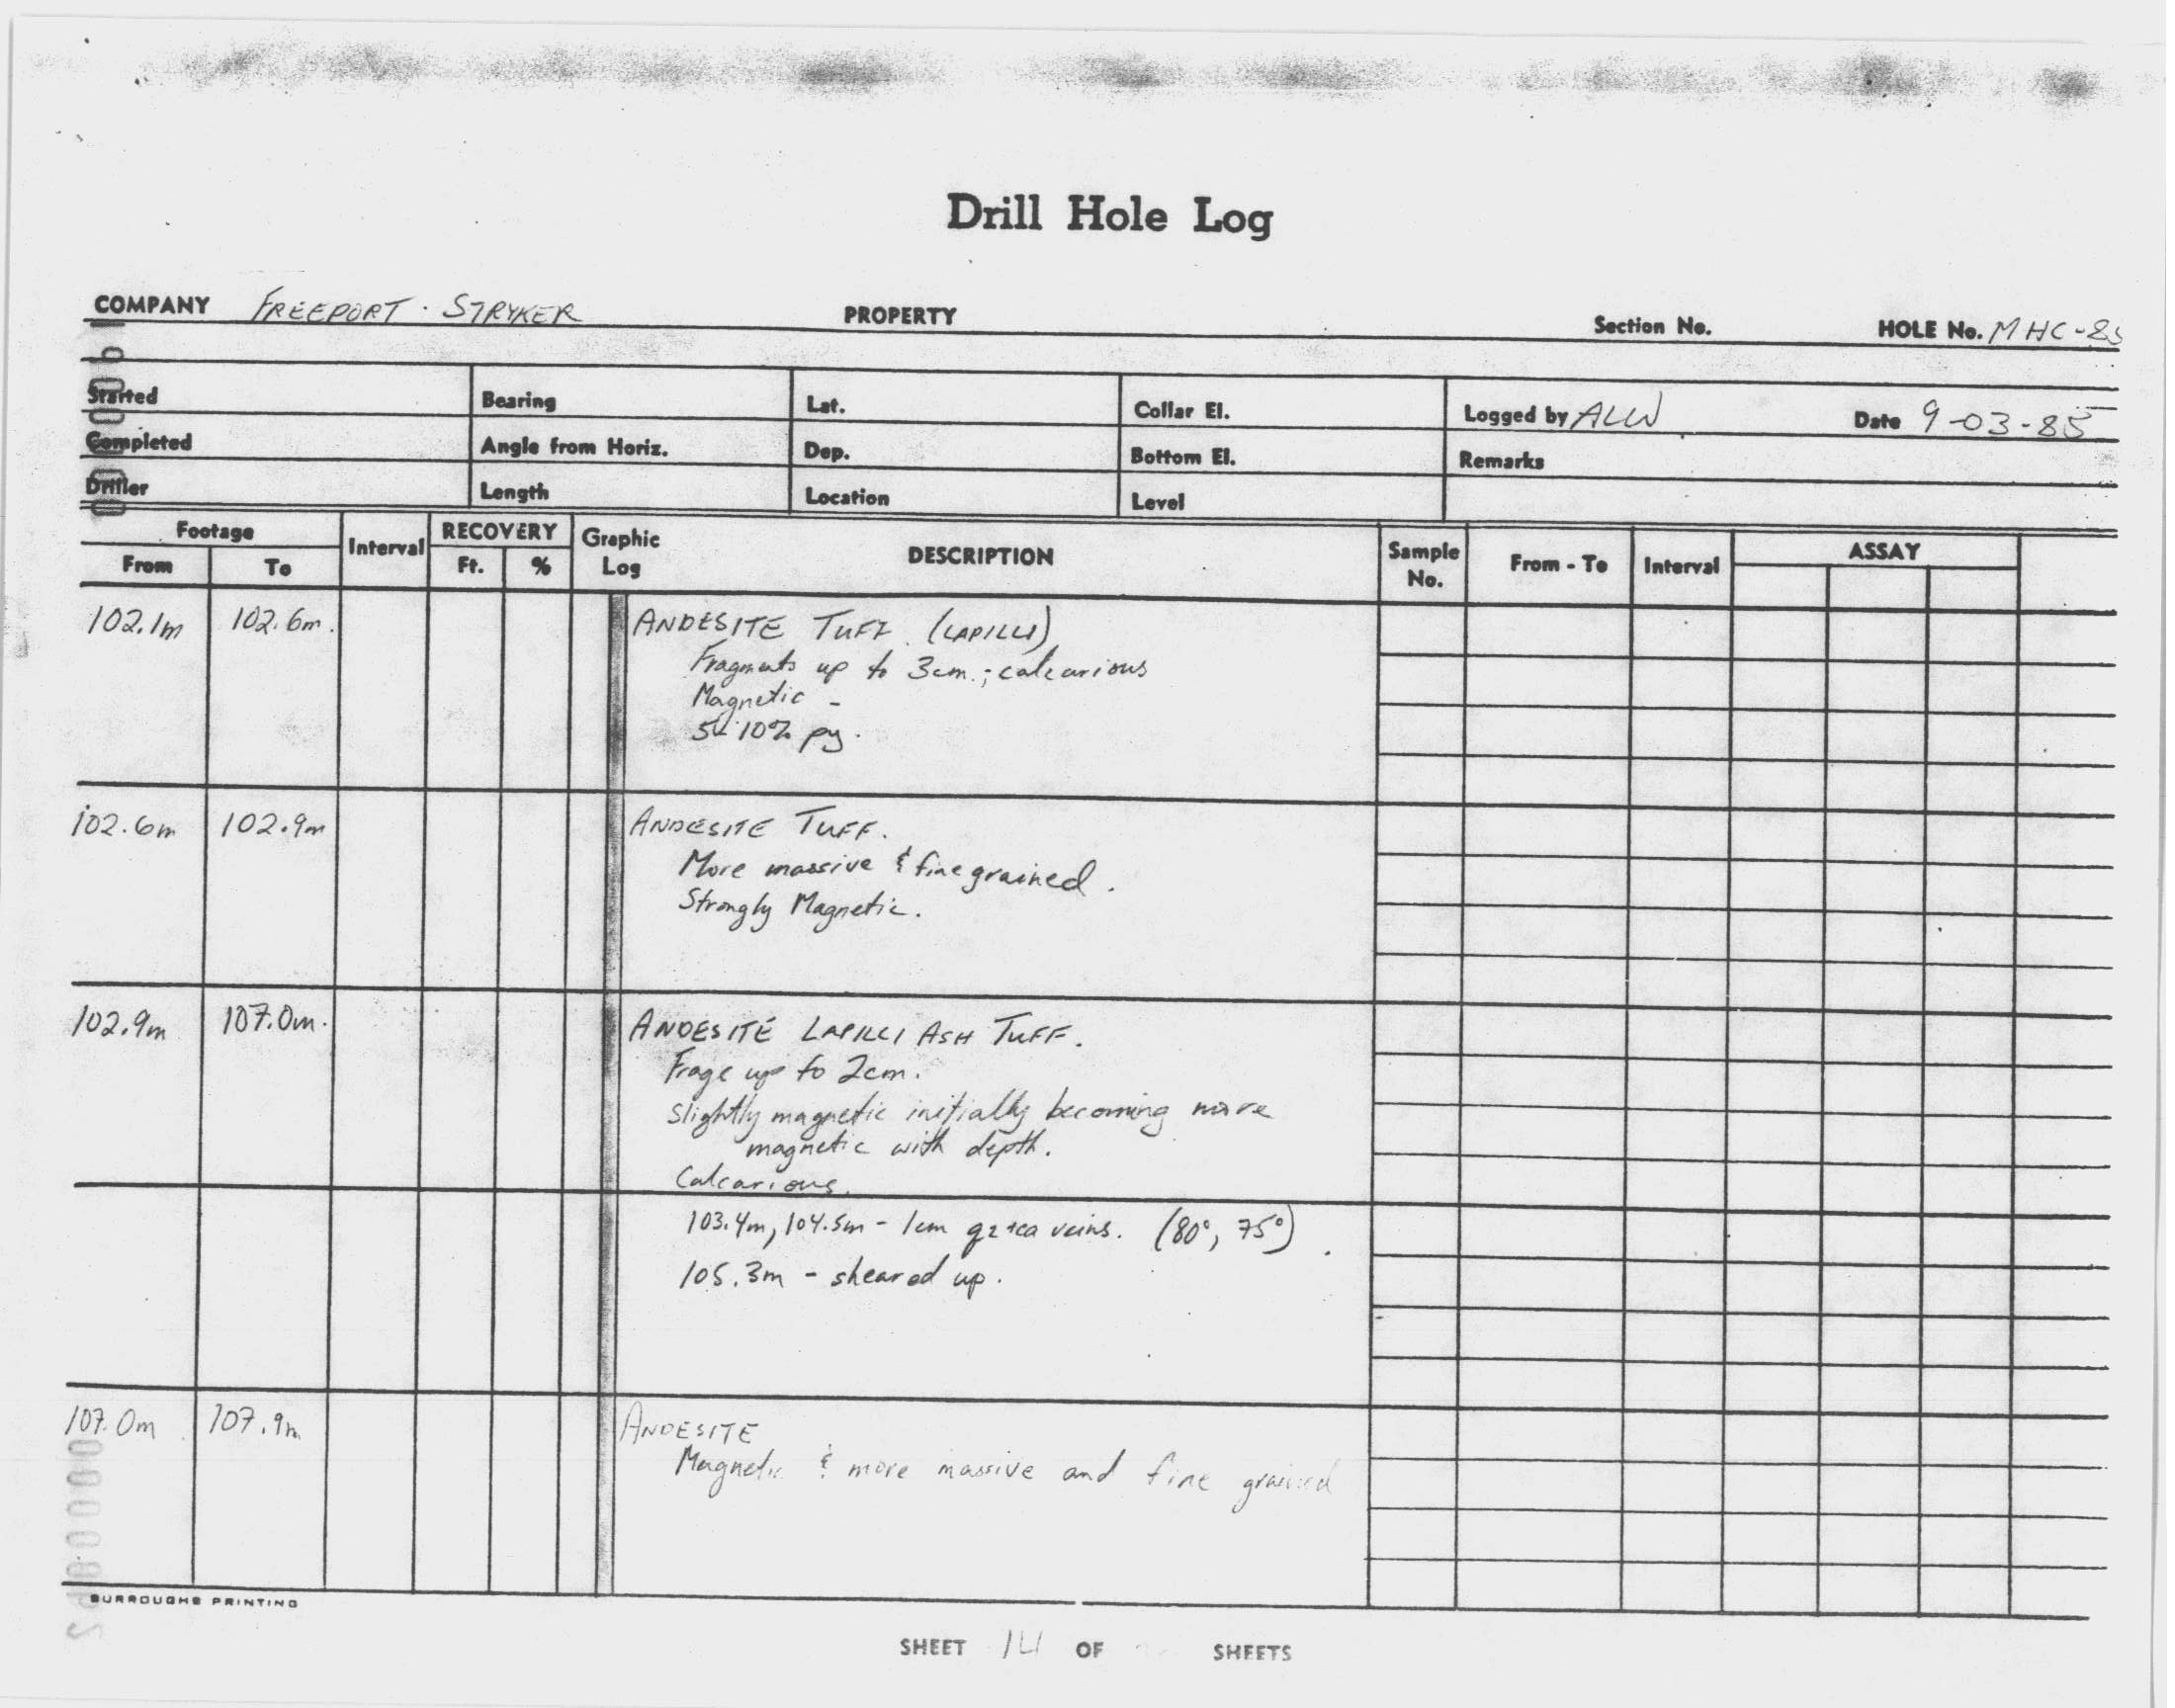 Drill Hole Log
COMPANY FREEPORT · STRYKER PROPERTY Section No. HOLE No. MHC-85
Started Bearing Lat. Collar El. Logged by ALW Date 9-03-85
Completed Angle from Horiz. Dep. Bottom El. Remarks
Driller Length Location Level
Footage Interval RECOVERY Graphic Log DESCRIPTION Sample No. From - To Interval ASSAY
From To Ft. %
102.1m 102.6m. ANDESITE TUFF (LAPILLI)
Fragments up to 3cm.; calcarious
Magnetic -
10% py.
102.6m 102.9m ANDESITE TUFF.
More massive & fine grained.
Strongly Magnetic.
102.9m 107.0m. ANDESITE LAPILLI ASH TUFF.
Frags up to 2cm.
slightly magnetic initially becoming more
magnetic with depth.
Calcarious.
103.4m, 104.5m - 1cm qz+ca veins. (80°, 75°).
105.3m - sheared up.
107.0m 107.9m ANDESITE
Magnetic & more massive and fine grained
BURROUGHS PRINTING
SHEET 14 OF SHEETS